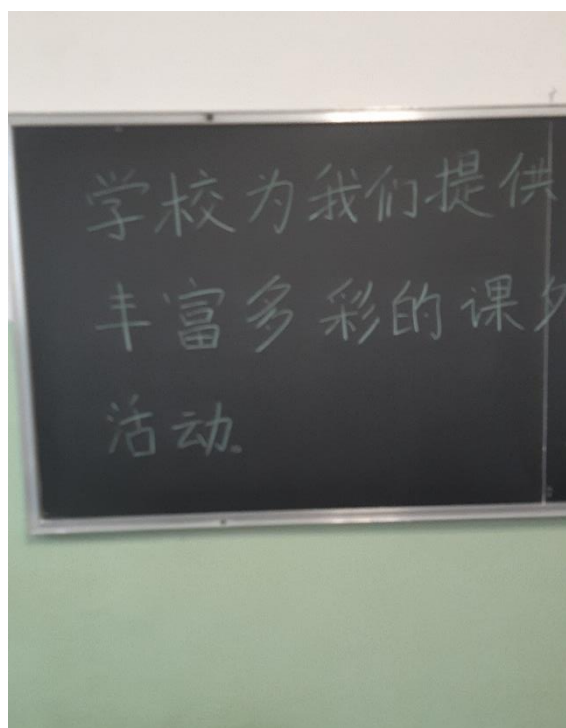 学校为我们提供
丰富多彩的课
活动。